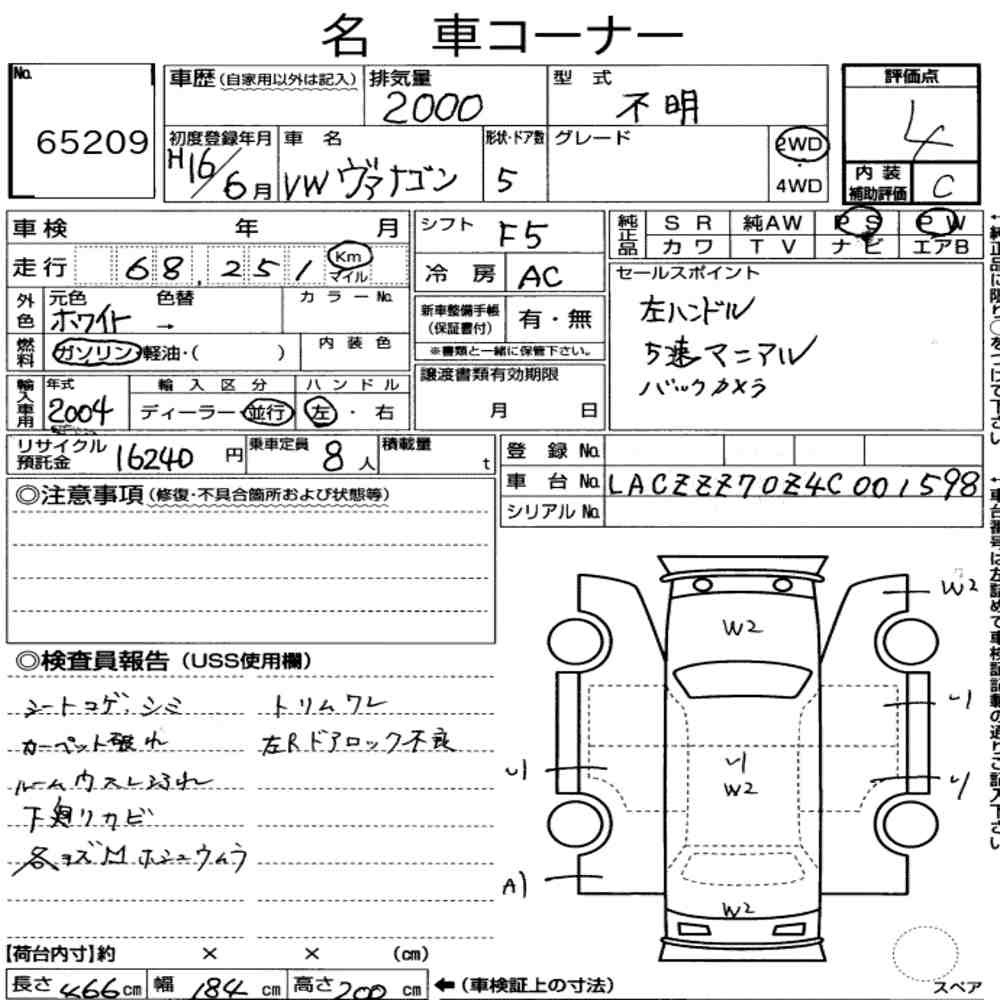 名 車コーナー
No.
65209
車歴(自家用以外は記入)
排気量
2000
型 式
不明
評価点
4
初度登録年月
H16/6月
車 名
VW ヴァナゴン
形状・ドア数
5
グレード
2WD
・
4WD
内 装
補助評価
C
車検 年 月
走行 68,251 Km
マイル
シフト
F5
冷 房
AC
純正品
SR 純AW PS PW
カワ TV ナビ エアB
セールスポイント
左ハンドル
5速マニアル
バックカメラ
外色
元色 色替
ホワイト →
カラーNo.
新車整備手帳
(保証書付)
有・無
※書類と一緒に保管下さい。
燃料
ガソリン・軽油・( )
内装色
輸入車用
年式
2004
輸入区分
ディーラー・並行
ハンドル
左・右
譲渡書類有効期限
月 日
リサイクル
預託金
16240円
乗車定員
8人
積載量
t
登 録 No.
車 台 No. LACZZZ70Z4C001598
シリアル No.
◎注意事項(修復・不具合箇所および状態等)
◎検査員報告(USS使用欄)
シートコゲ、シミ
トリムワレ
カーペット破れ
左Rドアロック不良
ルームウスレ汚れ
下廻りカビ
各キズ凹ホシュウムラ
W2
W2
W2
W2
A1
【荷台内寸】約 × × (cm)
長さ466cm 幅184cm 高さ200cm
←(車検証上の寸法)
スペア